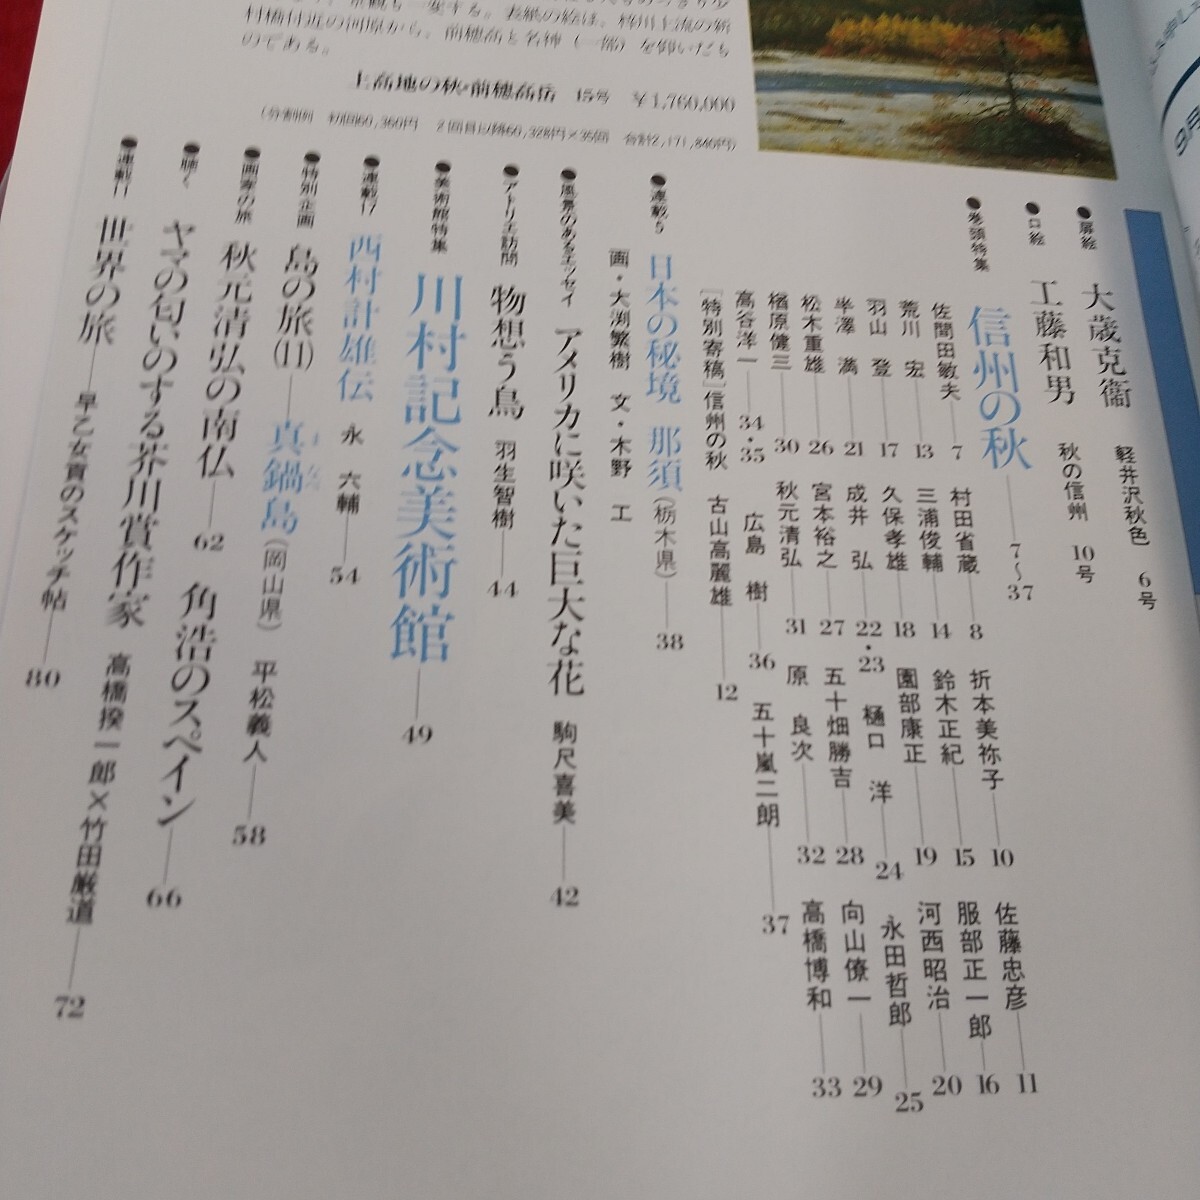 村橋付近の河原から、前穂高と名神(一部)を仰いだも
のである。
上高地の秋・前穂高岳 15号 ¥1,760,000
(分割例 初回60,360円 2回目以降60,328円×35回 合計2,171,840円)
●扉絵 大歳克衞 軽井沢秋色 6号
●口絵 工藤和男 秋の信州 10号
●巻頭特集 信州の秋 7〜37
佐間田敏夫 7 村田省蔵 8 折本美祢子 10 佐藤忠彦 11
荒川 宏 13 三浦俊輔 14 鈴木正紀 15 服部正一郎 16
羽山 登 17 久保孝雄 18 園部康正 19 河西昭治 20
半澤 満 21 成井 弘 22・23 樋口 洋 24 永田哲郎 25
松木重雄 26 宮本裕之 27 五十畑勝吉 28 向山僚一 29
楢原健三 30 秋元清弘 31 原 良次 32 高橋博和 33
高谷洋一 34・35 広島 樹 36 五十嵐二朗 37
[特別寄稿]信州の秋 古山高麗雄 12
●連載5 日本の秘境 那須(栃木県) 38
画・大渕繁樹 文・木野 工
●風景のあるエッセイ アメリカに咲いた巨大な花 駒尺喜美 42
●アトリエ訪問 物想う鳥 羽生智樹 44
●美術館特集 川村記念美術館 49
●連載17 西村計雄伝 永 六輔 54
●特別企画 島の旅(11) 真鍋島(岡山県) 平松義人 58
●画家の旅 秋元清弘の南仏 62 角浩のスペイン 66
●聴く ヤマの匂いのする芥川賞作家 高橋揆一郎×竹田厳道 72
●連載11 世界の旅 早乙女貢のスケッチ帖 80